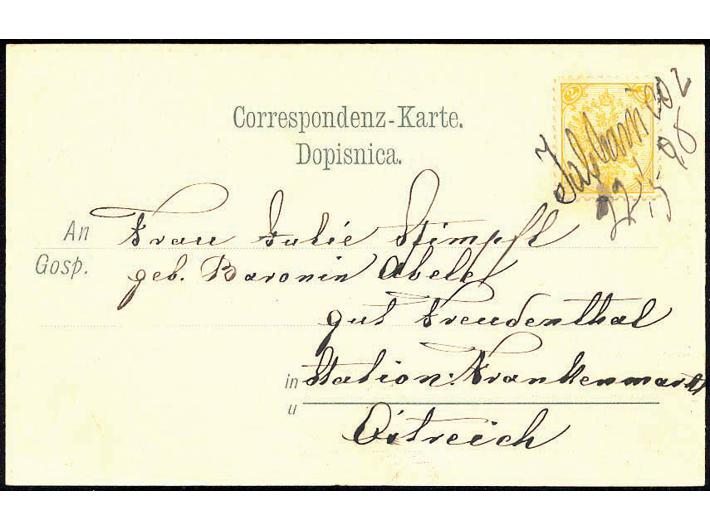 2 2
Correspondenz-Karte.
Dopisnica.
Jablanicoz
22/5 98
An Frau Julie Stimpfl
Gosp. geb. Baronin Abele
gut Freudenthal
in Station: Frankenmarkt
u
Östreich